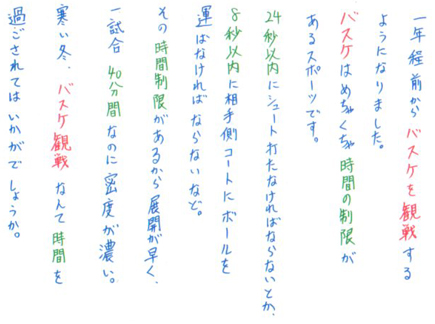 一年程前からバスケを観戦する
ようになりました。
バスケはめちゃくちゃ時間の制限が
あるスポーツです。
24秒以内にシュート打たなければならないとか、
8秒以内に相手側コートにボールを
運ばなければならないなど。
その時間制限があるから展開が早く、
一試合 40分間なのに密度が濃い。
寒い冬、バスケ観戦なんて時間を
過ごされてはいかがでしょうか。